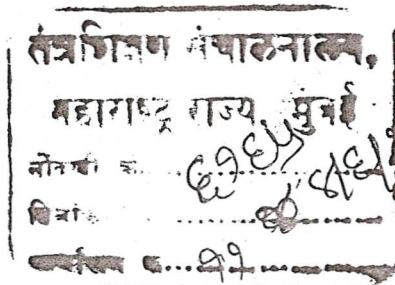 तंत्रशिक्षण संचालनालय,
महाराष्ट्र राज्य मुंबई
नोंदणी क्र. ..........
दिनांक ..........
कार्यासन क्र.... ११ ..........